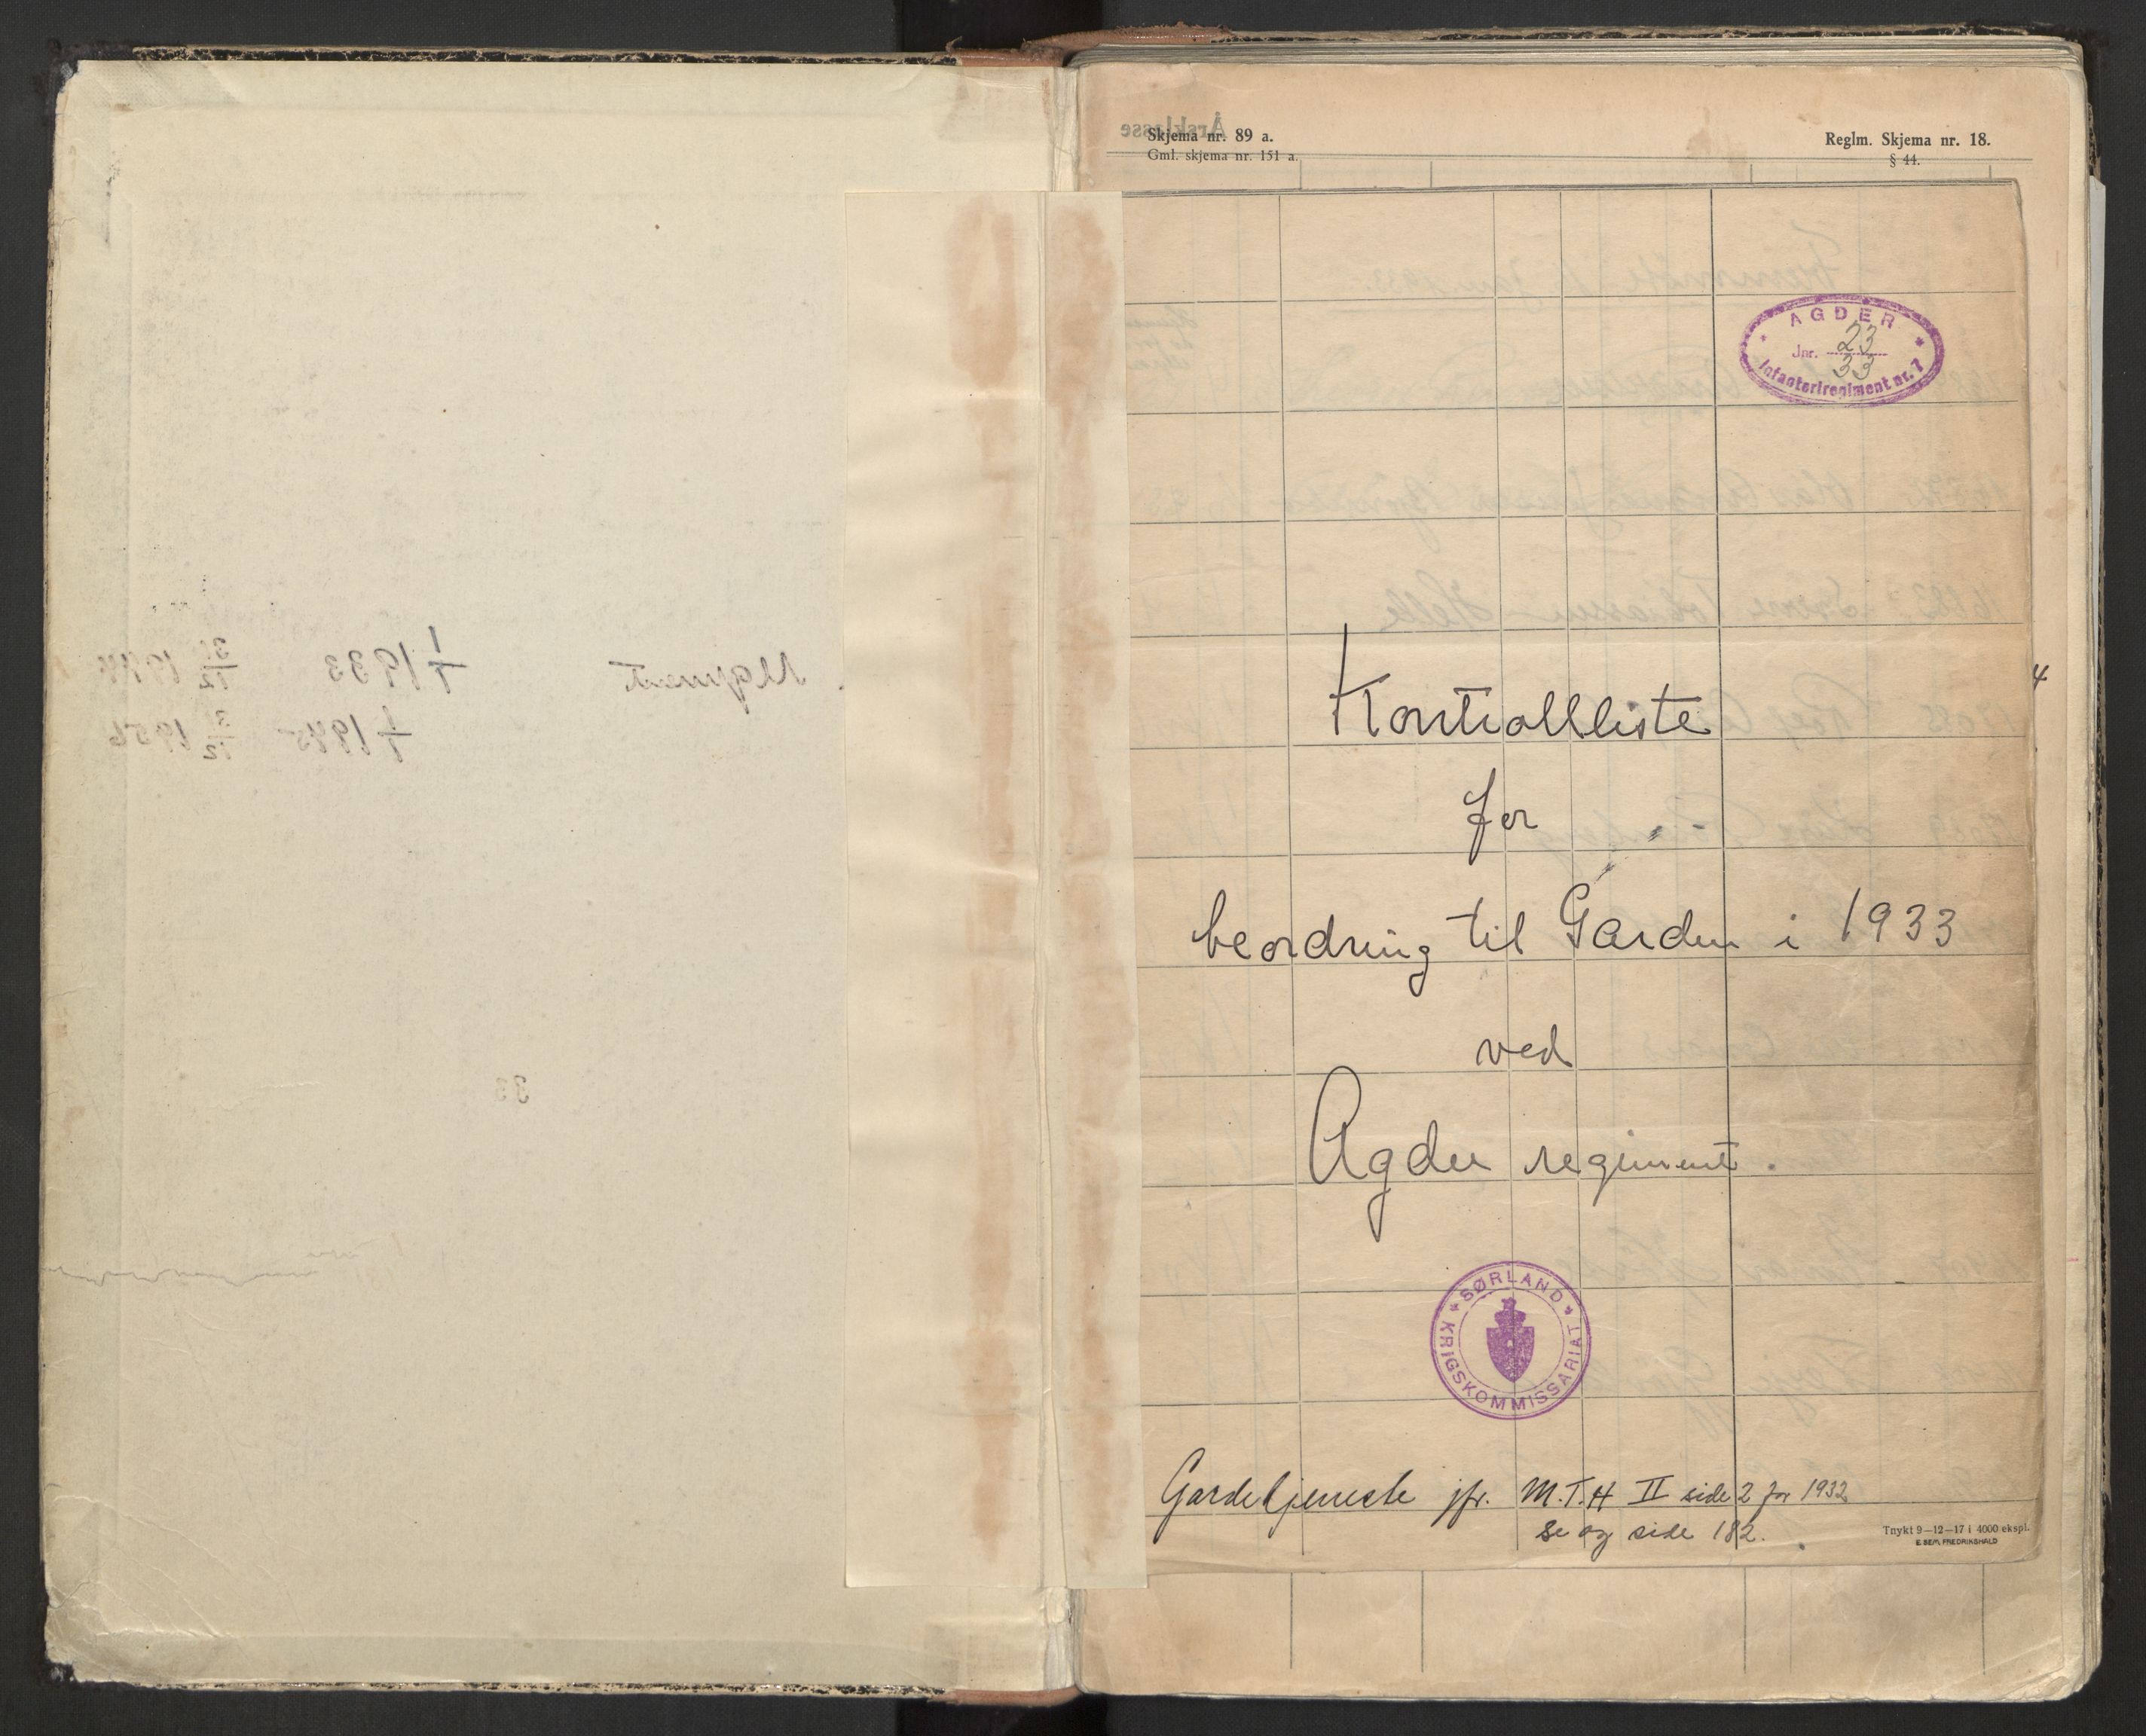 Skjema nr. 89 a.
Gml. skjema nr. 151 a.
Reglm. Skjema nr. 18.
§ 44.
Årsklasse
AGDER
Jnr. 23
33
Infanteriregiment nr. 7
Kontrollliste
for
beordring til Garden i 1933
ved
Agder regiment.
SØRLAND
KRIGSKOMMISSARIAT
Gardetjeneste jfr. M.T.H II side 2 for 1932
se og side 182.
Trykt 9—12—17 i 4000 ekspl.
E. SEM, FREDRIKSHALD
1/1 1933 31/12
1/1 1945 31/12 1956
33
4